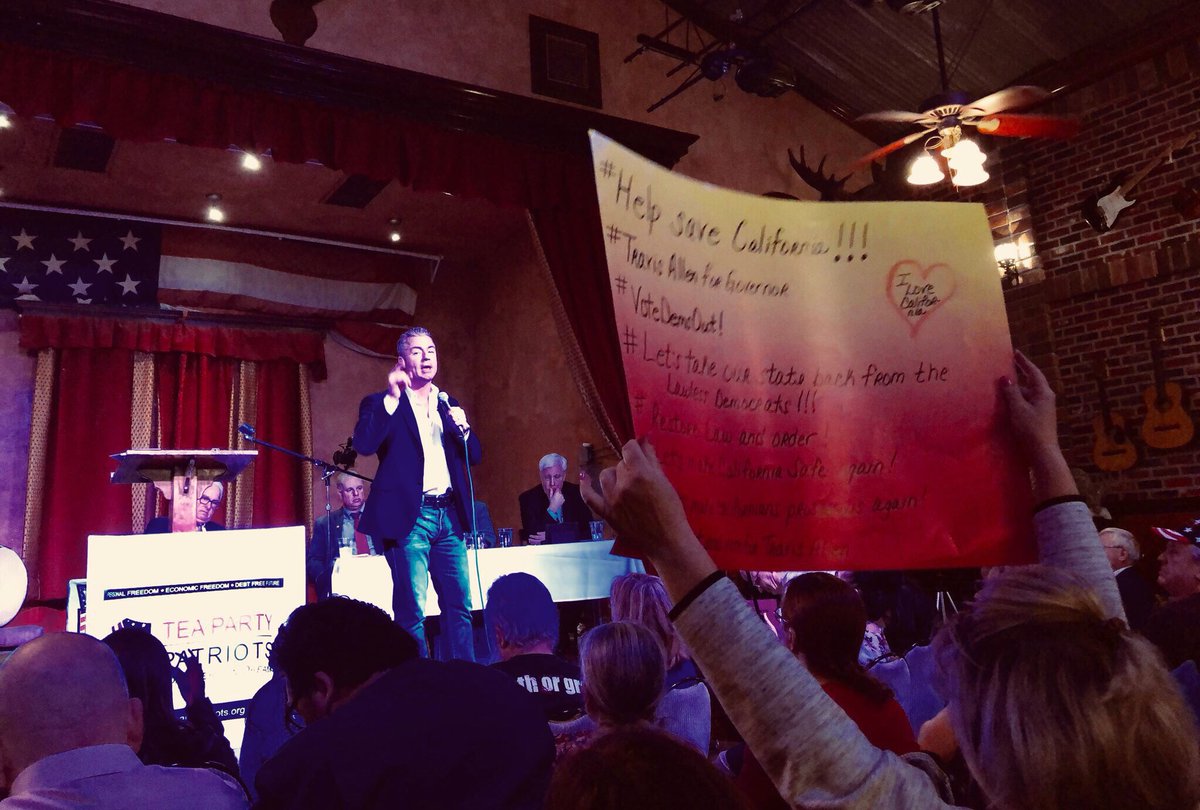 #Help save California!!!
#Travis Allen for Governor
#VoteDemsOut!
# Let's take our state back from the
Lawless Democrats!!!
# Restore Law and order!
California Safe again!
again!
I
Love
Califor
nia
FREEDOM • ECONOMIC FREEDOM • DEBT FREE FUTURE
TEA PARTY
PATRIOTS
th or gr